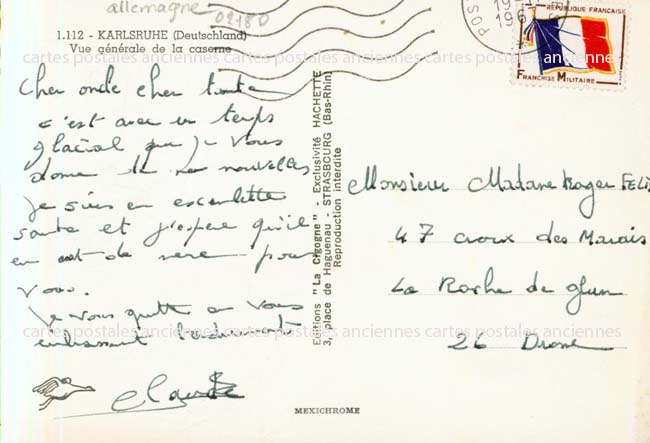 allemagne
02180
1.112 - KARLSRUHE (Deutschland)
Vue générale de la caserne
cartes postales anciennes cartes postales anciennes cartes postales anciennes
Cher oncle cher tante
c'est avec un temps
glacial que je vous
donne de mes nouvelles
Je suis en excelente
sante et j'espere qu'il
en est de meme pour
vous.
Je vous quitte en vous
embrassant
Claude
Editions "La Cigogne" - Exclusivité HACHETTE
3, place de Haguenau - STRASBOURG (Bas-Rhin)
Reproduction interdite
POS
19
196
RÉPUBLIQUE FRANÇAISE
FRANCHISE MILITAIRE
Monsieur Madame Roger FELI
47 croix des Marais
La Roche de glun
26 Drome
cartes postales anciennes cartes postales anciennes cartes postales anciennes
MEXICHROME